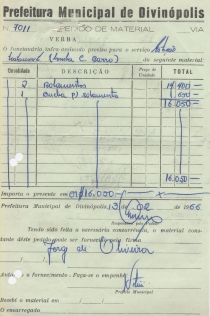 Prefeitura Municipal de Divinópolis
N. 7011 PEDIDO DE MATERIAL VIA
VERBA
O funcionário infra-assinado precisa para o serviço
do seguinte material
Quantidade DESCRIÇÃO Preço da Unidade TOTAL
2 rolamentos 14 400
1 p/ rolamento 650
16.050
16.050
Importa o presente em 16.000
Prefeitura Municipal de Divinópolis, 13 de de 1966
Tendo sido feita a necessária concorrência, o material constante
dêste pedido pode ser fornecido pela firma
Jorge de Oliveira
Autorizo o fornecimento - Faça-se o empenho
Prefeito Municipal
Recebi o material em
O encarregado